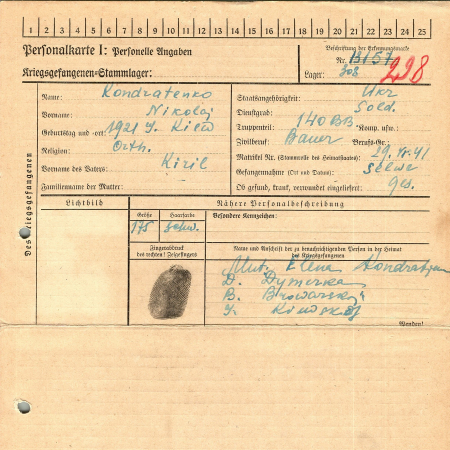 1 2 3 4 5 6 7 8 9 10 11 12 13 14 15 16 17 18 19 20 21 22 23 24 25
Personalkarte I: Personelle Angaben
Kriegsgefangenen-Stammlager:
Beschriftung der Erkennungsmarke
Nr. 13157
Lager: 308
298
Des Kriegsgefangenen
Name: Kondratenko
Vorname: Nikolaj
Geburtstag und -ort: 1921 J. Kiew
Religion: Orth.
Vorname des Vaters: Kiril
Familienname der Mutter:
Staatsangehörigkeit: Ukr
Dienstgrad: Sold.
Truppenteil: 140 BB Komp. usw.:
Zivilberuf: Bauer Berufs-Gr.:
Matrikel Nr. (Stammrolle des Heimatstaates):
Gefangennahme (Ort und Datum):
Ob gesund, krank, verwundet eingeliefert: ges.
Lichtbild
Nähere Personalbeschreibung
Größe Haarfarbe Besondere Kennzeichen:
175 schw.
Fingerabdruck
des rechten! Zeigefingers
Name und Anschrift der zu benachrichtigenden Person in der Heimat
des Kriegsgefangenen
Mut. Elena Kondratjen
D. Dymerka
B. Browarskij
J. Kiewskij
Wenden!